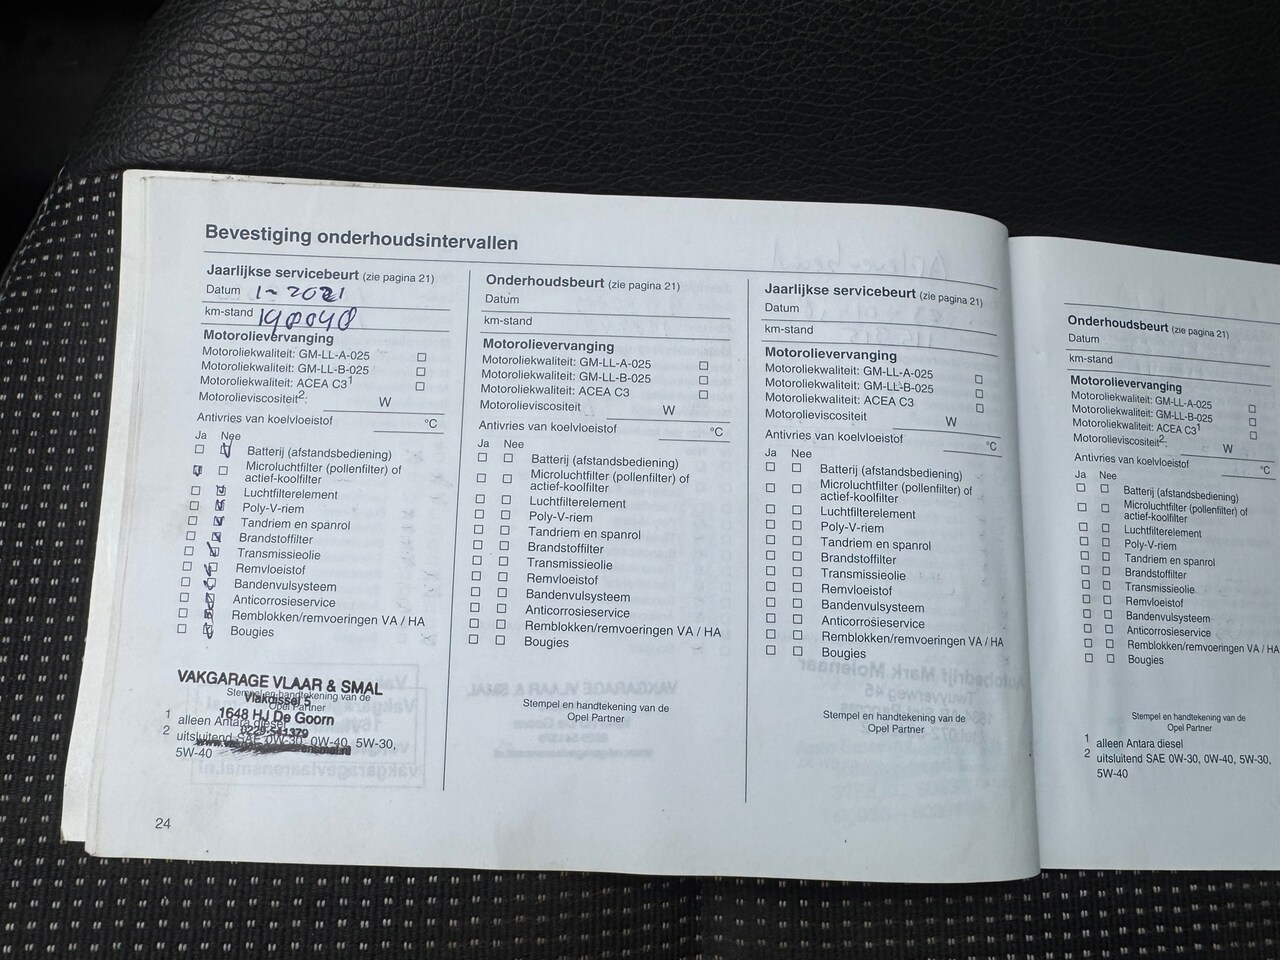 Bevestiging onderhoudsintervallen
Jaarlijkse servicebeurt (zie pagina 21)
Datum 1-2021
km-stand 198048
Motorolievervanging
Motoroliekwaliteit: GM-LL-A-025
Motoroliekwaliteit: GM-LL-B-025
Motoroliekwaliteit: ACEA C3¹
Motorolieviscositeit²:
W
Antivries van koelvloeistof °C
Ja Nee
Batterij (afstandsbediening)
Microluchtfilter (pollenfilter) of
actief-koolfilter
Luchtfilterelement
Poly-V-riem
Tandriem en spanrol
Brandstoffilter
Transmissieolie
Remvloeistof
Bandenvulsysteem
Anticorrosieservice
Remblokken/remvoeringen VA / HA
Bougies
VAKGARAGE VLAAR & SMAL
Stempel en handtekening van de
Vlakdissel 5
Opel Partner
1648 HJ De Goorn
1 alleen Antara diesel
0229-541379
2 uitsluitend SAE 0W-30, 0W-40, 5W-30,
5W-40
24
Onderhoudsbeurt (zie pagina 21)
Datum
km-stand
Motorolievervanging
Motoroliekwaliteit: GM-LL-A-025
Motoroliekwaliteit: GM-LL-B-025
Motoroliekwaliteit: ACEA C3
Motorolieviscositeit
W
Antivries van koelvloeistof °C
Ja Nee
Batterij (afstandsbediening)
Microluchtfilter (pollenfilter) of
actief-koolfilter
Luchtfilterelement
Poly-V-riem
Tandriem en spanrol
Brandstoffilter
Transmissieolie
Remvloeistof
Bandenvulsysteem
Anticorrosieservice
Remblokken/remvoeringen VA / HA
Bougies
Stempel en handtekening van de
Opel Partner
Jaarlijkse servicebeurt (zie pagina 21)
Datum
km-stand
Motorolievervanging
Motoroliekwaliteit: GM-LL-A-025
Motoroliekwaliteit: GM-LL-B-025
Motoroliekwaliteit: ACEA C3
Motorolieviscositeit
W
Antivries van koelvloeistof °C
Ja Nee
Batterij (afstandsbediening)
Microluchtfilter (pollenfilter) of
actief-koolfilter
Luchtfilterelement
Poly-V-riem
Tandriem en spanrol
Brandstoffilter
Transmissieolie
Remvloeistof
Bandenvulsysteem
Anticorrosieservice
Remblokken/remvoeringen VA / HA
Bougies
Stempel en handtekening van de
Opel Partner
Onderhoudsbeurt (zie pagina 21)
Datum
km-stand
Motorolievervanging
Motoroliekwaliteit: GM-LL-A-025
Motoroliekwaliteit: GM-LL-B-025
Motoroliekwaliteit: ACEA C3¹
Motorolieviscositeit²:
W
Antivries van koelvloeistof °C
Ja Nee
Batterij (afstandsbediening)
Microluchtfilter (pollenfilter) of
actief-koolfilter
Luchtfilterelement
Poly-V-riem
Tandriem en spanrol
Brandstoffilter
Transmissieolie
Remvloeistof
Bandenvulsysteem
Anticorrosieservice
Remblokken/remvoeringen VA / HA
Bougies
Stempel en handtekening van de
Opel Partner
1 alleen Antara diesel
2 uitsluitend SAE 0W-30, 0W-40, 5W-30,
5W-40